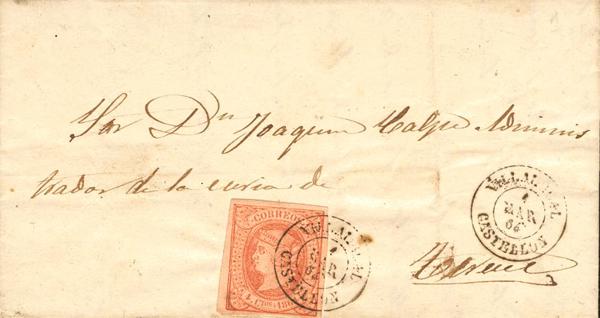 Sor Dn Joaquin Calpe Adminis
trador de la curia de
Teruel
CORREOS
4 Ctos 186
VILLAREAL
1
MAR
64
CASTELLON
VILLAREAL
1
MAR
64
CASTELLON